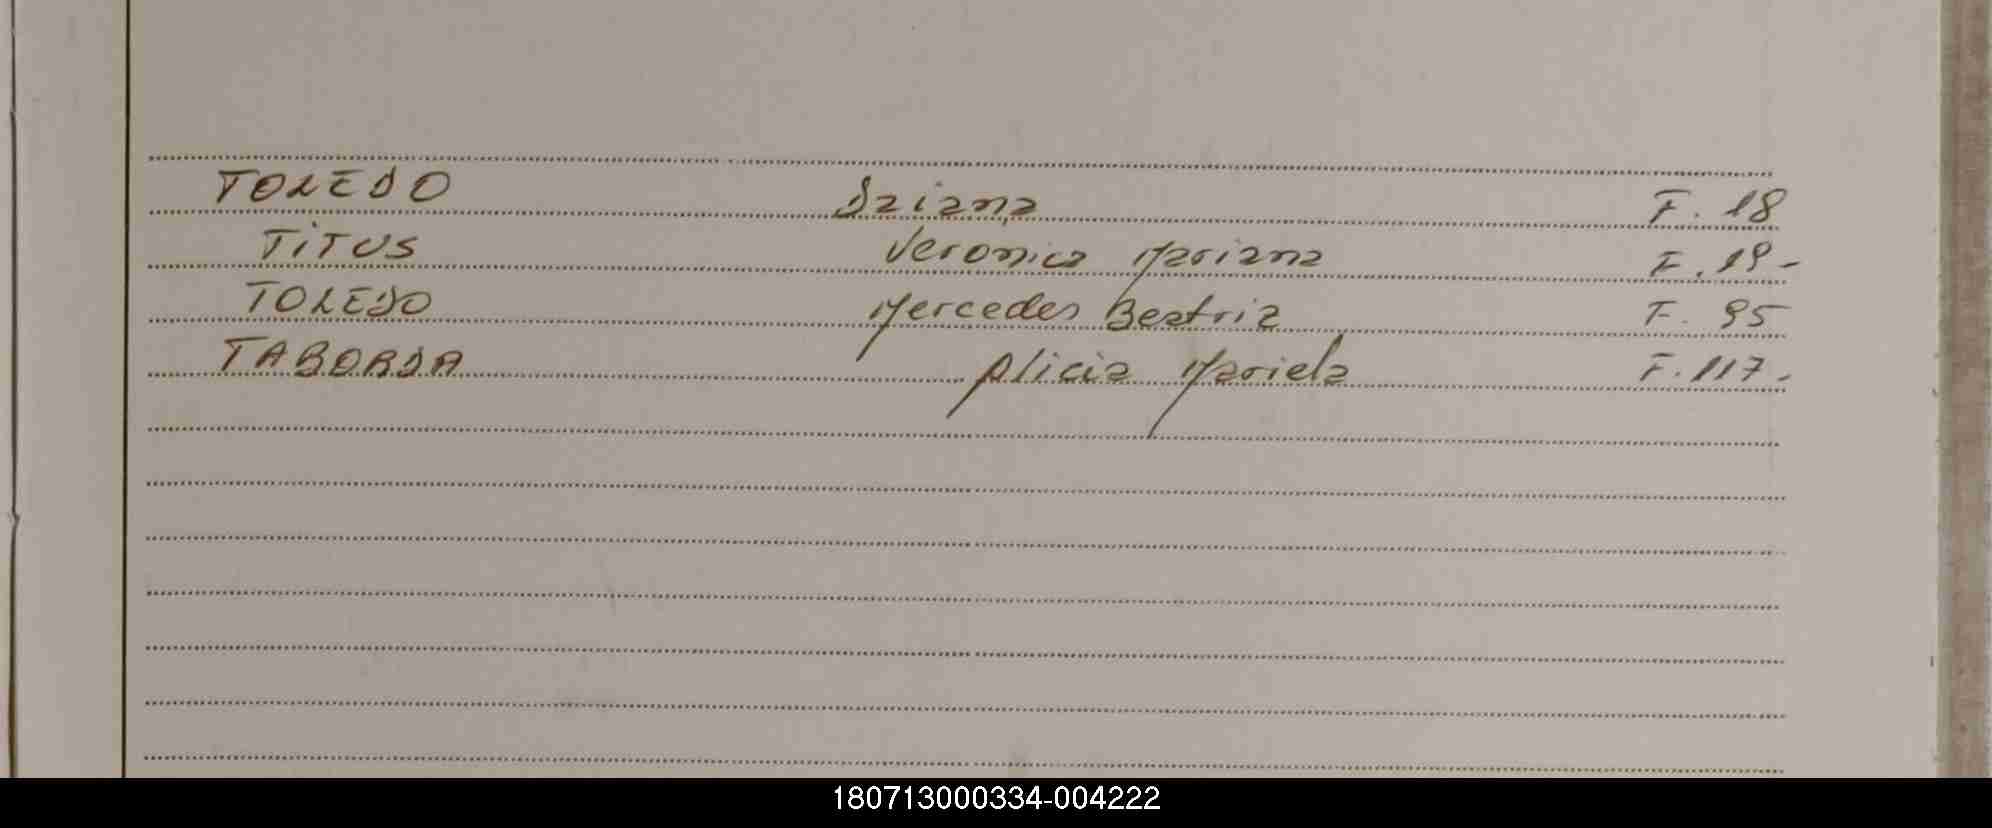 TOLEDO Daiana F. 18
TiTUS Veronica Mariana F. 19-
TOLEDO Mercedes Beatriz F. 95
TABORDA Alicia Mariela F. 117-
180713000334-004222